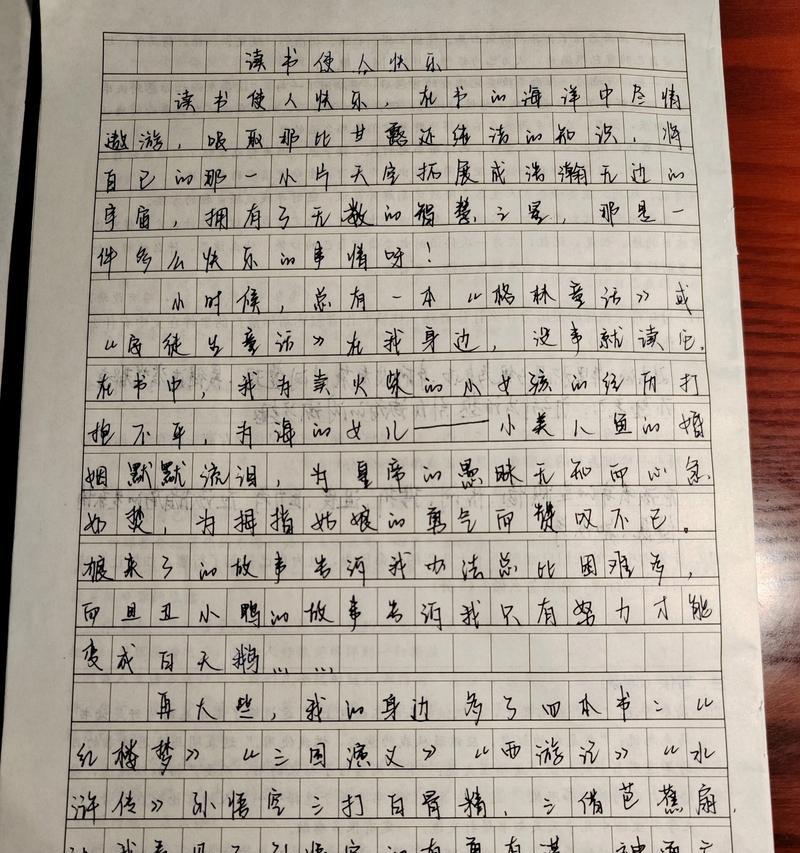 读书使人快乐
读书使人快乐,在书的海洋中尽情
遨游,吸取那比甘露还纯洁的知识,将
自己的那一小片天空拓展成浩瀚无边的
宇宙,拥有了无数的智慧之星,那是一
件多么快乐的事情呀!
小时候,总有一本《格林童话》或
《安徒生童话》在我身边,没事就读它.
在书中,我为卖火柴的小女孩的经历打
抱不平,为海的女儿——小美人鱼的婚
姻默默流泪,为皇帝的愚昧无知而心急
如焚,为拇指姑娘的勇气而赞叹不已。
狼来了的故事告诉我办法总比困难多,
而且丑小鸭的故事告诉我只有努力才能
变成白天鹅……
再大些,我的身边多了四本书:《
红楼梦》《三国演义》《西游记》《水
浒传》孙悟空三打白骨精,三借芭蕉扇,